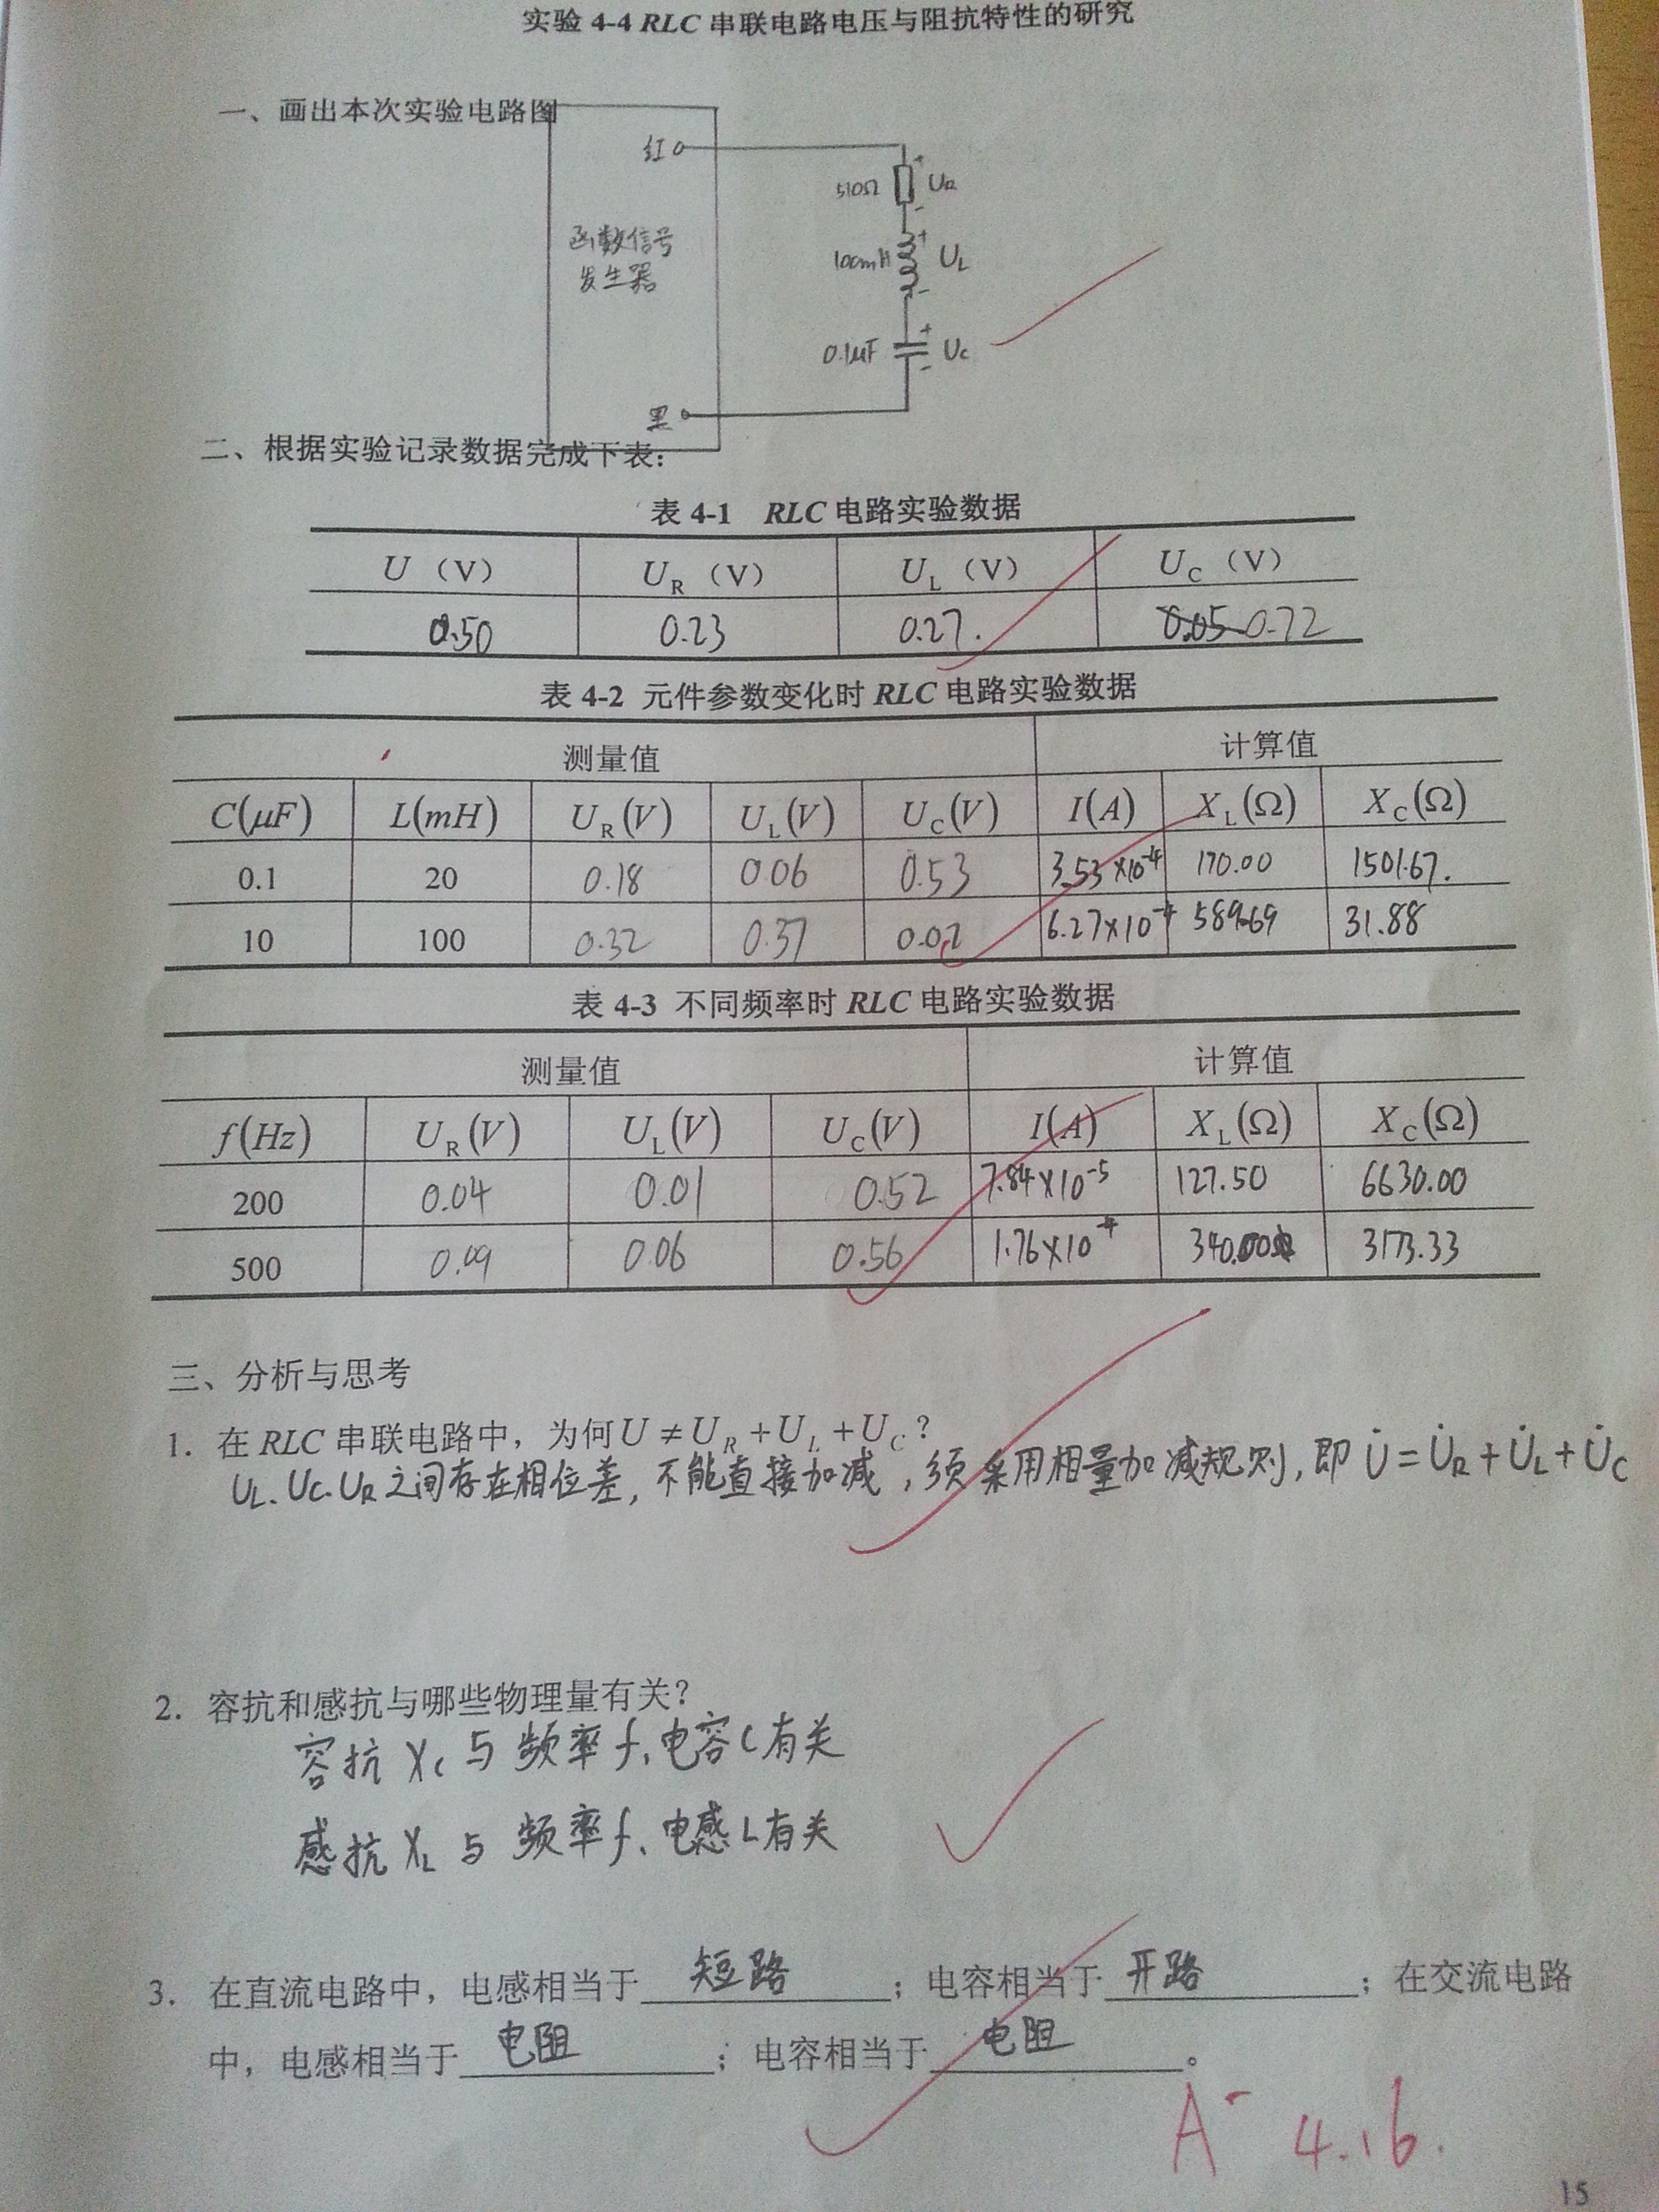 实验 4-4 RLC 串联电路电压与阻抗特性的研究
一、画出本次实验电路图
红
510Ω
+
U_R
-
函数信号
发生器
100mH
+
U_L
-
0.1μF
+
U_C
-
黑
二、根据实验记录数据完成下表：
表 4-1 RLC 电路实验数据
U（V） U_R（V） U_L（V） U_C（V）
0.50 0.23 0.27. 0.05 0.72
表 4-2 元件参数变化时 RLC 电路实验数据
测量值 计算值
C(μF) L(mH) U_R(V) U_L(V) U_C(V) I(A) X_L(Ω) X_C(Ω)
0.1 20 0.18 0.06 0.53 3.53×10⁻⁴ 170.00 1501.67.
10 100 0.32 0.37 0.02 6.27×10⁻⁴ 589.69 31.88
表 4-3 不同频率时 RLC 电路实验数据
测量值 计算值
f(Hz) U_R(V) U_L(V) U_C(V) I(A) X_L(Ω) X_C(Ω)
200 0.04 0.01 0.52 7.84×10⁻⁵ 127.50 6630.00
500 0.09 0.06 0.56 1.76×10⁻⁴ 340.00 3173.33
三、分析与思考
1. 在 RLC 串联电路中，为何 U ≠ U_R + U_L + U_C？
U_L、U_C、U_R 之间存在相位差，不能直接加减，须采用相量加减规则，即 U̇ = U̇_R + U̇_L + U̇_C
2. 容抗和感抗与哪些物理量有关？
容抗 X_C 与 频率 f、电容 C 有关
感抗 X_L 与 频率 f、电感 L 有关
3. 在直流电路中，电感相当于 短路 ；电容相当于 开路 ；在交流电路
中，电感相当于 电阻 ；电容相当于 电阻 。
A⁻ 4.16.
15